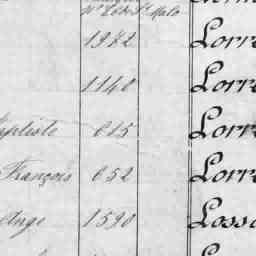 St. Malo
1972 Lorr
1140 Lorr
aptiste 615 Lorr
François 652 Lorr
Ange 1590 Loss